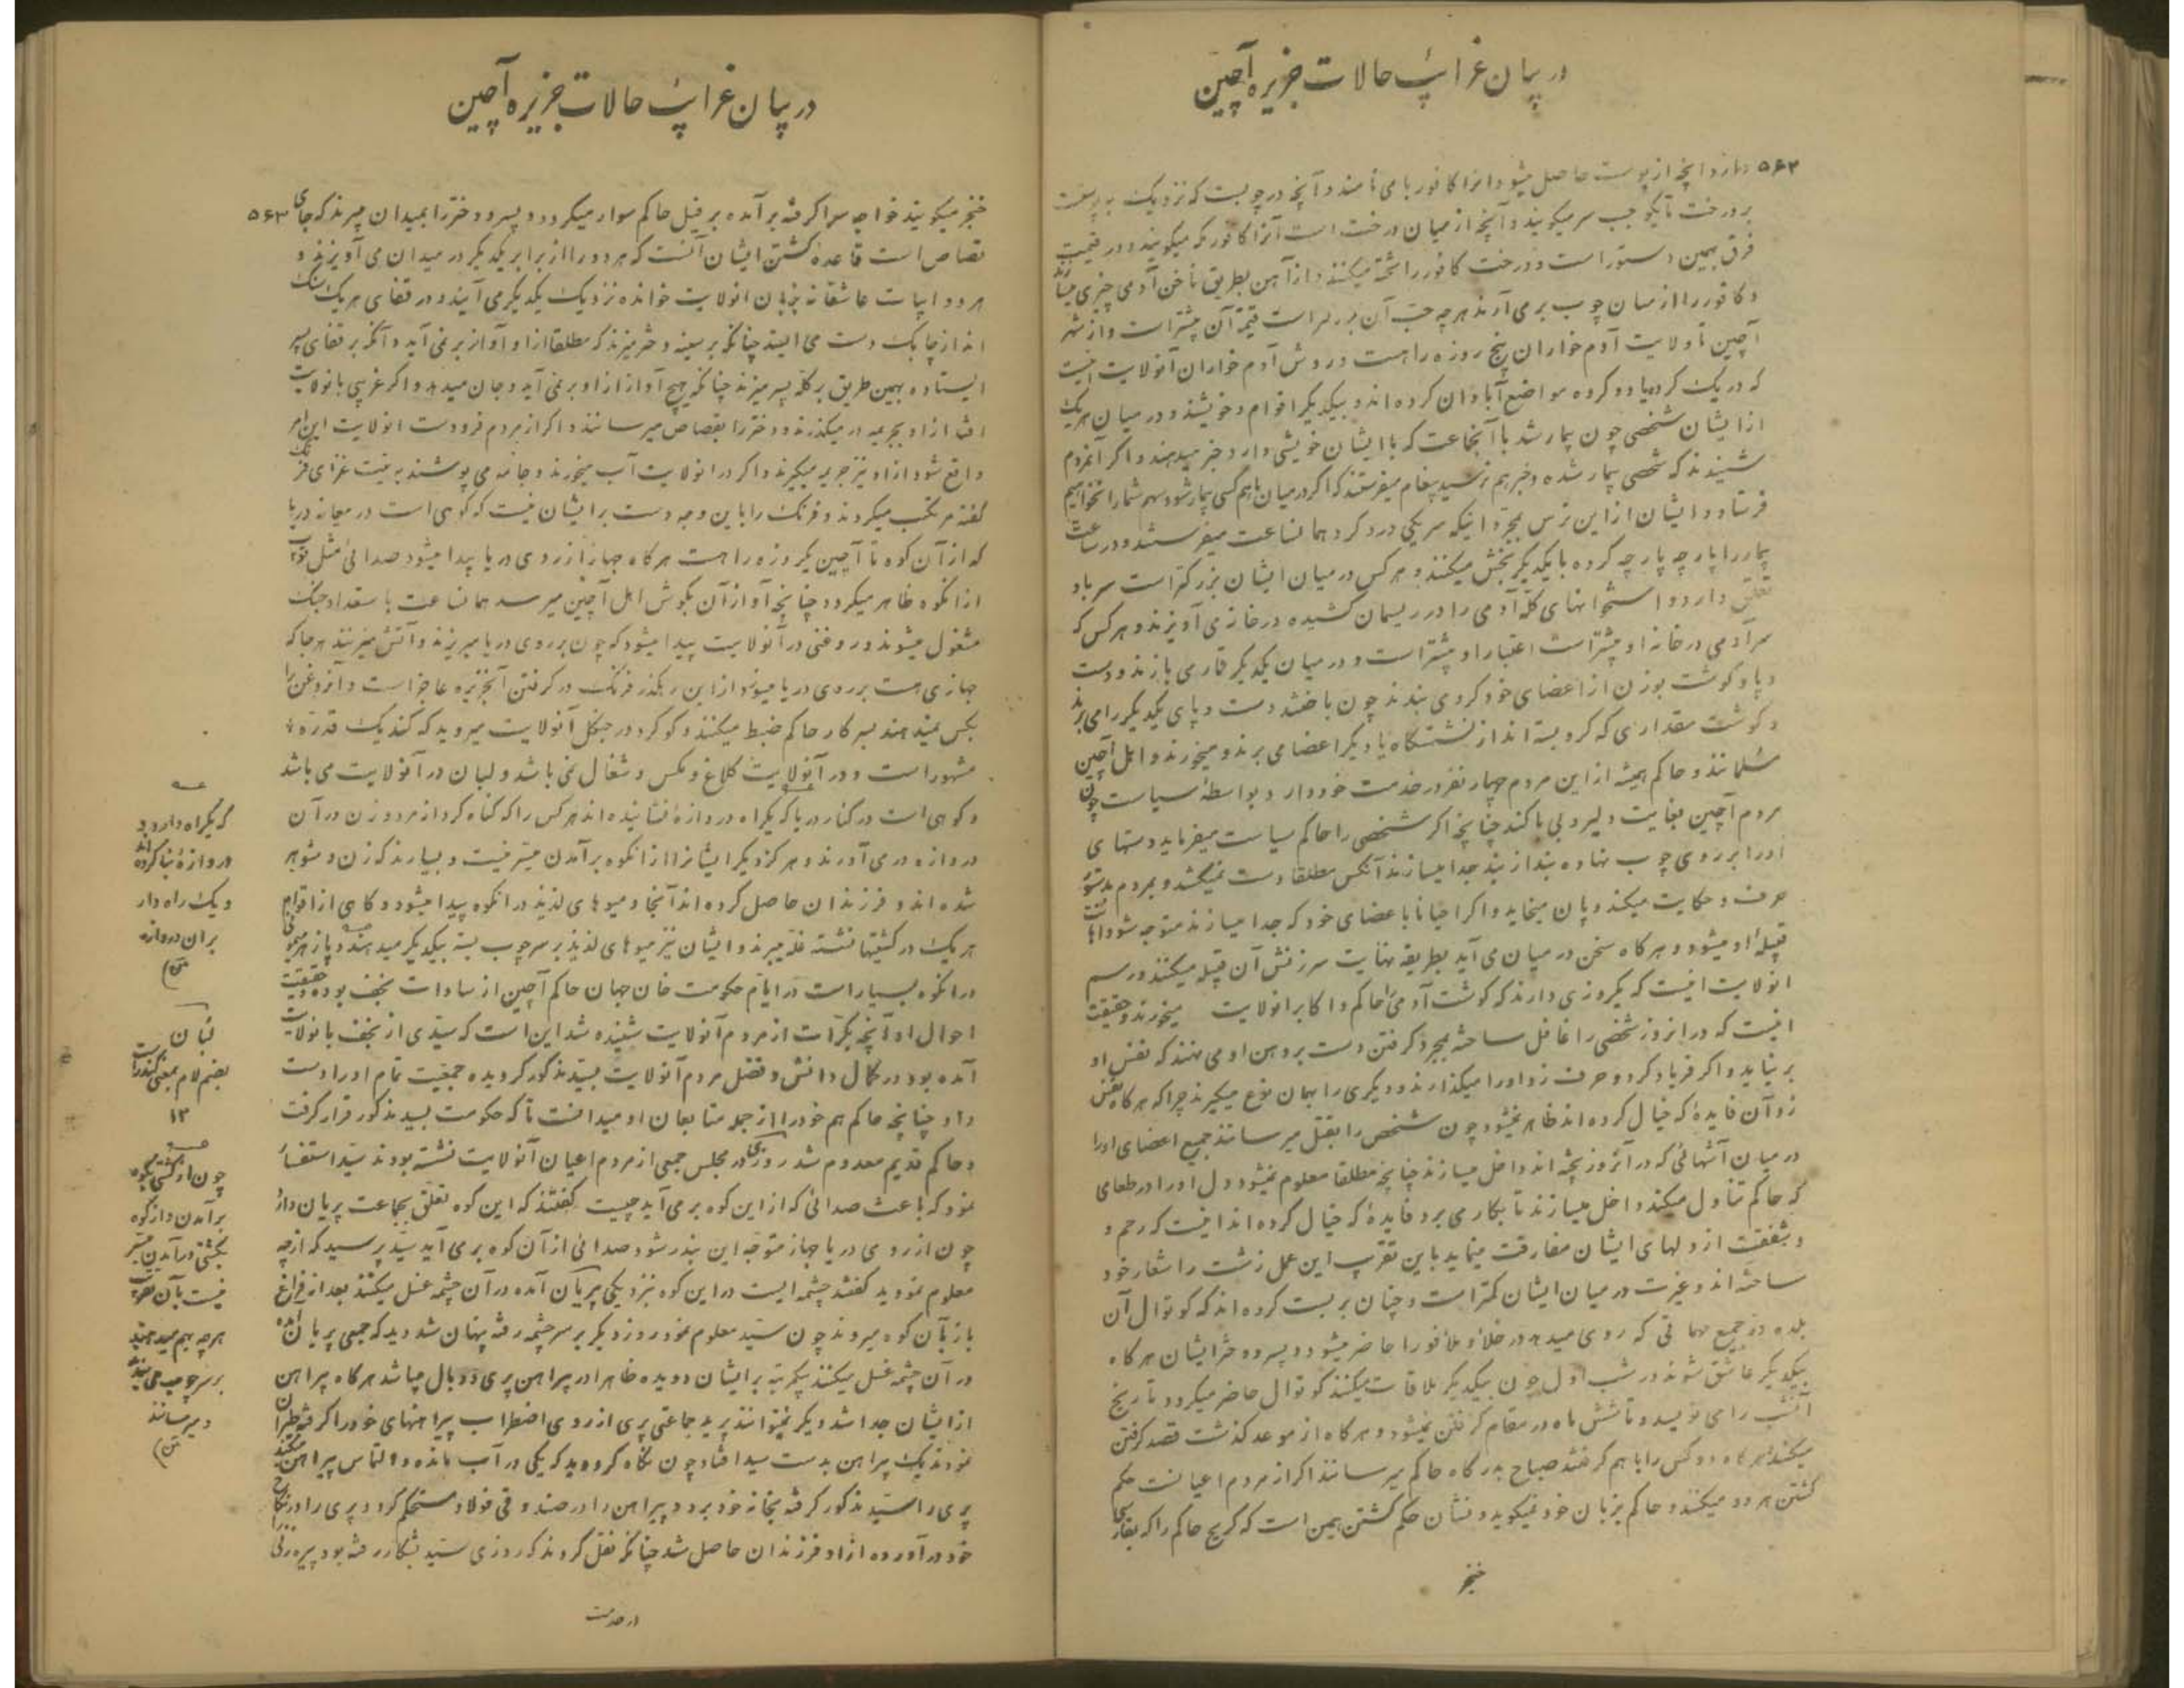 در بیان غرایب حالات جزیره آچین
۵۶۲ دارد و آنچه از پوست حاصل میشود انرا کافور با می نامند و آنچه در چوبست که نزدیک به پوست
بر درخت تا یکوجب سر میکویند و آنچه از میان درخت است آنرا کافور که میکویند و در قیمت
فرق بهمین دستور است و درخت کافور را تخته میکنند و از آهن بطریق ناخن آدمی چیزی
و کافور را از میان چوب برمی آرند هر چه حب آن بزرکتر است قیمة آن بیشتر است و از شهر
آچین تا ولایت آدم خواران پنج روزه راهست و روش آدم خواران آنولایت اینست
که در یک کروه یا دو کروه مواضع آبادان کرده اند و بیکدیگر اقوام و خویشند و در میان هریک
ازایشان شخصی چون بیمار شد با آنجماعت که با ایشان خویشی دارد خبر میدهند و اکر آنمردم
شنیدند که شخصی بیمار شده و خبر هم نرسید پیغام میفرستند که اکر در میان ما هم کسی بیمار شود سهم شما را نخواهیم
فرستاد و ایشان از این ترس بمجرد اینکه سر یکی درد کرد همانساعت میفرستند و در ساعت
بیمار را پارچه پارچه کرده با یکدیگر بخش میکنند و هر کس در میان ایشان بزرکتر است سر باو
تعلق دارد و استخوانهای کله آدمی را در ریسمان کشیده در خانه می آویزند و هر کس که
سر آدمی در خانه او بیشتر است اعتبار او بیشتر است و در میان یکدیگر قمار می بازند و دست
و پا و کوشت بوزن از اعضای خود کرو می بندند چون باختند دست و پای یکدیگر را می برند
و کوشت مقداری که کرو بسته اند از نشستگاه یا دیکر اعضا می برند و میخورند و اهل آچین
مسلمانند و حاکم همیشه از این مردم چهار نفر در خدمت خود دارد بواسطه سیاست چون
مردم آچین بغایت دلیر و بی باکند چنانچه اکر شخصی را حاکم سیاست میفرماید دستهای
اورا بر روی چوب نهاده بند از بند جدا میسازند آنکس مطلقا دست نمیکشد و بمردم بدستور
حرف و حکایت میکند و پان میخاید و اکر احیانا باعضای خود که جدا میسازند متوجه شود اهانت
قبیلهٔ او میشود و هر کاه سخن در میان می آید بطریقه نهایت سرزنش آن قبیله میکنند و رسم
انولایت اینست که یکروزی دارند که کوشت آدمی را حاکم و اکابر انولایت میخورند و حقیقت
اینست که در انروز شخصی را غافل ساخته بمجرد کرفتن دست بر دهن او می نهند که نفس او
بر نیاید و اکر فریاد کرد و حرف زد اورا میکذارند و دیکری را بهمان نوع میکیرند چرا که هر کاه نفس
زد آن فایدهٔ که خیال کرده اند ظاهر نمیشود چون شخص را بقتل میرسانند جمیع اعضای اورا
در میان آشهائی که در آنروز پخته اند داخل میسازند چنانچه مطلقا معلوم نمیشود و دل اورا در طعامی
که حاکم تناول میکند داخل میسازند تا بکار می برد و فایدهٔ که خیال کرده اند اینست که رحم و
و شفقت از دلهای ایشان مفارقت مینماید باین تقریب این عمل زشت را شعار خود
ساخته اند و غیرت در میان ایشان کمتر است و چنان بربست کرده اند که کوتوال آن
بلده در جمیع مهماتی که روی میدهد در خلاء و ملاء فورا حاضر میشود و پسر و دخترایشان هر کاه
بیکدیگر عاشق شوند در شب اول چون بیکدیگر ملاقات میکنند کوتوال حاضر میکردد تاریخ
آنشب را می نویسد و تا شش ماه در مقام کرفتن نمیشود و هر کاه از موعد کذشت قصد کرفتن
میکند هر کاه دو کس را با هم کرفتند صباح بدرکاه حاکم میرسانند اکر از مردم اعیانست حکم
کشتن هر دو میکند و حاکم بزبان خود نمیکوید و نشان حکم کشتن همین است که کریچ حاکم را که بفارسی
خنجر
در بیان غرایب حالات جزیره آچین
خنجر میکویند خواجه سرا کرفته برآمده بر فیل حاکم سوار میکردد و پسر و دختر را بمیدان میبرند که جای ۵۶۳
قصاص است قاعدهٔ کشتن ایشان آنست که هر دو را از برابر یکدیگر در میدان می آویزند و
هر دو ابیات عاشقانه بزبان انولایت خوانده نزدیک یکدیگر می آیند و در قفای هر یک سنک
انداز چابک دست می ایستد چنانکه بر سینه دختر میزند که مطلقا از او آواز بر نمی آید و آنکه بر قفای پسر
ایستاده بهمین طریق بر کله پسر میزند چنانکه هیچ آواز از او بر نمی آید و جان میدهد و اکر غریبی بانولایت
افتد از او بجریمه در میکذرند و دختر را بقصاص میرسانند و اکر از مردم فرودست انولایت این امر
واقع شود از او نیز جریمه میکیرند و اکر در انولایت آب میخورند و جامه می پوشند به نیت غزای فرنک
کفته مرتکب میکردند و فرنک را باین وجه دست بر ایشان نیست که کوهی است در میانه دریا
که از آن کوه تا آچین یکروزه راهست هر کاه جهاز از روی دریا پیدا میشود صدائی مثل توپ
از انکوه ظاهر میکردد چنانچه آواز آن بکوش اهل آچین میرسد همانساعت باستعداد جنک
مشغول میشوند و روغنی در آنولایت پیدا میشود که چون بر روی دریا میریزند و آتش میزنند هر جا که
جهازی هست بر روی دریا میسوزد از این رهکذر فرنک در کرفتن آنجزیره عاجز است و آنروغن را
بکس نمیدهند بسرکار حاکم ضبط میکنند و کوکرد در جنکل آنولایت میروید که کندیک قدره
مشهور است و در آنولایت کلاغ و مکس و شغال نمی باشد و لبان در آنولایت می باشد
و کوهی است در کنار دریا که یکراه دروازهٔ نشانیده اند هر کس را که کناه کرد از مرد و زن در آن
دروازه در می آورند و هر کز دیکر ایشانرا از انکوه برآمدن میسر نیست و بسیارند که زن و شوهر
شده اند و فرزندان حاصل کرده اند آنجا و میوهای لذیذ در انکوه پیدا میشود و کاهی از اقوام
هر یک در کشتیها نشسته غله میبرند و ایشان نیز میوهای لذیذ بر سر چوب بسته بیکدیگر میدهند و پازهر میمونی
در انکوه بسیار است در ایام حکومت خان جهان حاکم آچین از سادات نجف بوده و حقیقت
احوال او آنچه بکرات از مردم آنولایت شنیده شد این است که سیدی از نجف بانولایت
آمده بود در کمال دانش و فضل مردم آنولایت بسید مذکور کرویده جمعیت تمام اورا دست
داد چنانچه حاکم هم خود را از جمله متابعان او میدانست تا که حکومت بسید مذکور قرار کرفت
و حاکم قدیم معدوم شد روزی در مجلس جمعی از مردم اعیان آنولایت نشسته بودند سید استفسار
نمود که باعث صدائی که از این کوه بر می آید چیست کفتند که این کوه تعلق بجماعت پریان دارد
چون از روی دریا جهاز متوجه این بندر شود صدائی از آن کوه بر می آید سید پرسید که از چه
معلوم نمودید کفتند چشمه ایست در این کوه بنزدیکی پریان آمده در آن چشمه غسل میکنند بعد از فراغ
باز بآن کوه میروند چون سید معلوم نمود روز دیکر بر سر چشمه رفته پنهان شد دید که جمعی پریان آمده
در آن چشمه غسل میکنند یکمرتبه بر ایشان دویده ظاهرا در پیراهن پری دو بال میباشد هر کاه پیراهن
از ایشان جدا شد دیکر نمیتوانند پرید جماعتی پری از روی اضطراب پیراهنهای خود را کرفته طیران
نمودند یک پیراهن بدست سید افتاد چون نکاه کرد دید که یکی در آب مانده و التماس پیراهن میکند
پری را سید مذکور کرفته بخانه خود برد و پیراهن را در صندوقی فولاد مستحکم کرد و پری را در نکاح
خود در آورده از او فرزندان حاصل شد چنانکه نقل کردند که روزی سید بشکار رفته بود پیرزنی
در خدمت
که یکراه دارد و
دروازهٔ بنا کرده اند
و یک راه دار
بران دروازه
لبان
بضم لام بمعنی کندر است
۱۲
چون از کشتی بکوه
برآمدن و از کوه
بکشتی در آمدن میسر
نیست بآن تقریب
هر چه بهم میدهند
بر سر چوب می بندند
و میرسانند